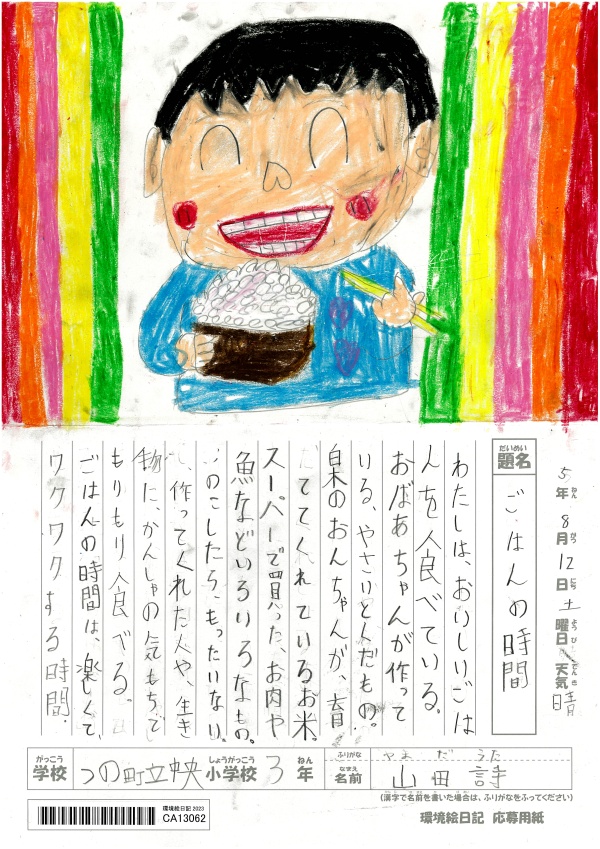 5年8月12日土曜日 天気 晴
ねん がつ にち ようび てんき
だいめい
題名 ごはんの時間
わたしは、おいしいごは
んを食べている。
おばあちゃんが作って
いる、やさいとんだもの。
泉のおんちゃんが、育
たててくれているお米。
スーパーで買った、お肉や
魚などいろいろなもの。
のこしたら、もったいない。
、作ってくれた人や、生き
物に、かんしゃの気もちで
もりもり食べる。
ごはんの時間は、楽しくて、
ワクワクする時間。
がっこう しょうがっこう ねん ふりがな やまだ うた
学校 つの町立中央小学校 3年 なまえ 名前 山田 詩
(漢字で名前を書いた場合は、ふりがなをふってください)
環境絵日記 2023
CA13062
環境絵日記 応募用紙